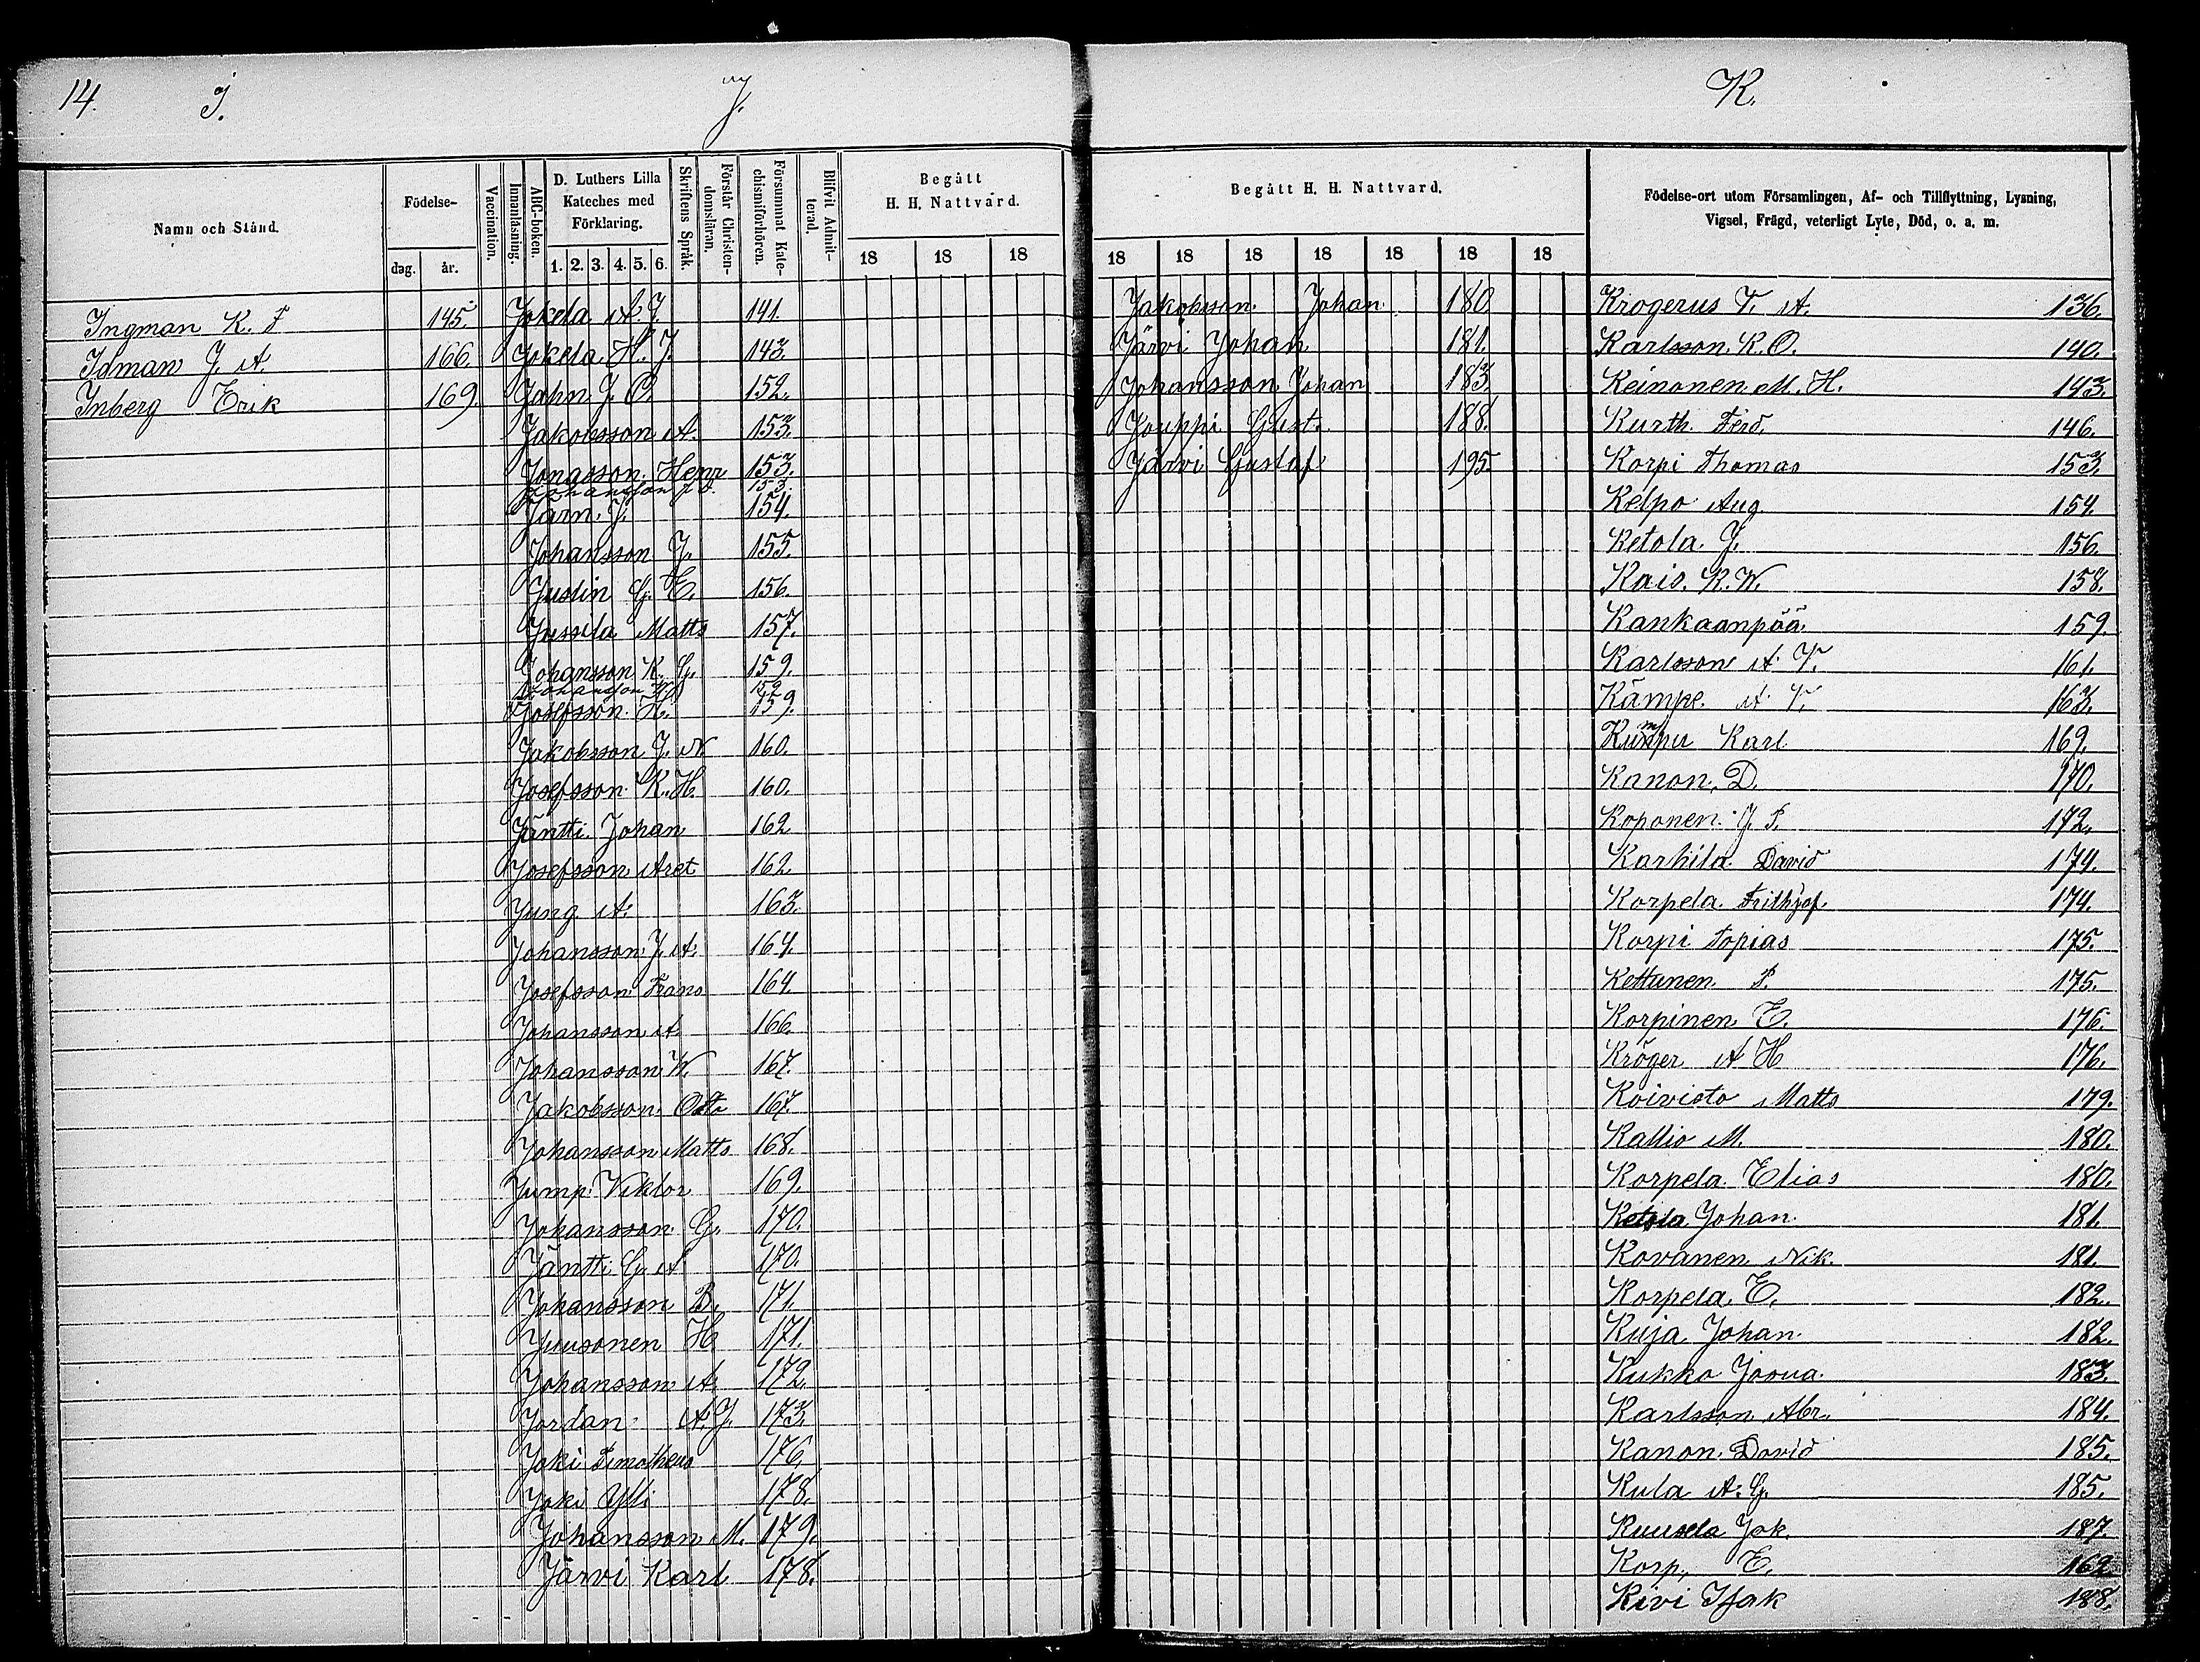 14. I. J. K.
Namn och Stånd.
Födelse-
dag. år.
Vaccination.
Innanläsning.
ABC-boken.
D. Luthers Lilla
Kateches med
Förklaring.
1. 2. 3. 4. 5. 6.
Skriftens Språk.
Förstår Christen-
domsläran.
Försummat Kate-
chismiförhören.
Blifvit Admit-
terad.
Begått
H. H. Nattvard.
18 18 18
Begått H. H. Nattvard.
18 18 18 18 18 18 18
Födelse-ort utom Församlingen, Af- och Tillflyttning, Lysning,
Vigsel, Frägd, veterligt Lyte, Död, o. a. m.
Ingman K. F 145.
Idman J. A. 166.
Inberg Erik 169.
Jokela A. J. 141.
Jokela H. J. 143.
Jahn J. O. 152.
Jakobsson A. 153.
Jonasson Henr 153.
Johansson J. O. 153
Järn J. 154.
Johansson J. 155.
Justin G. E. 156.
Jussila Matts 157.
Johansson K. G. 159.
Johansson 159
Josefsson H. 159.
Jakobsson J. N. 160.
Josefsson K. H. 160.
Jäntti Johan 162
Josefsson Aret 162
Jung A. 163.
Johansson J. A. 164.
Josefsson Frans 164.
Johansson A. 166.
Johansson W. 167.
Jakobsson Otto 167.
Johansson Matts 168.
Jump Viktor 169.
Johansson G. 170.
Jäntti G. A 170.
Johansson B. 171.
Juusonen H. 171.
Johansson A. 172.
Jordan A. J. 173.
Joki Timotheus 176.
Joki Yli 178.
Johansson M. 179.
Järvi Karl 178.
Jakobsson Johan 180.
Järvi Johan 181.
Johansson Johan 183.
Jouppi Gust. 188.
Järvi Gustaf 195.
Krogerus T. A. 136.
Karlsson K. O. 140.
Keinonen M. H. 143.
Kurth Ferd. 146.
Korpi Thomas 153.
Kelpo Aug. 154.
Ketola J. 156.
Kais. K. W. 158.
Kankaanpää. 159.
Karlsson A. T. 161.
Kämpe A. T. 163.
Kumpu Karl 169.
Kanon D. 170.
Koponen J. P. 172.
Karhila David 174.
Korpela Frithjof 174.
Korpi Topias 175.
Kettunen P. 175.
Korpinen E. 176.
Kröger A H 176.
Koivisto Matts 179.
Kallio M. 180.
Korpela Elias 180.
Ketola Johan 181.
Kovanen Nik. 181.
Korpela E. 182.
Kuja Johan 182.
Kukko Josua 183.
Karlsson Abr. 184.
Kanon David 185.
Kula A. G. 185.
Kuusela Jak. 187.
Korp. E. 162
Kivi Isak 188.